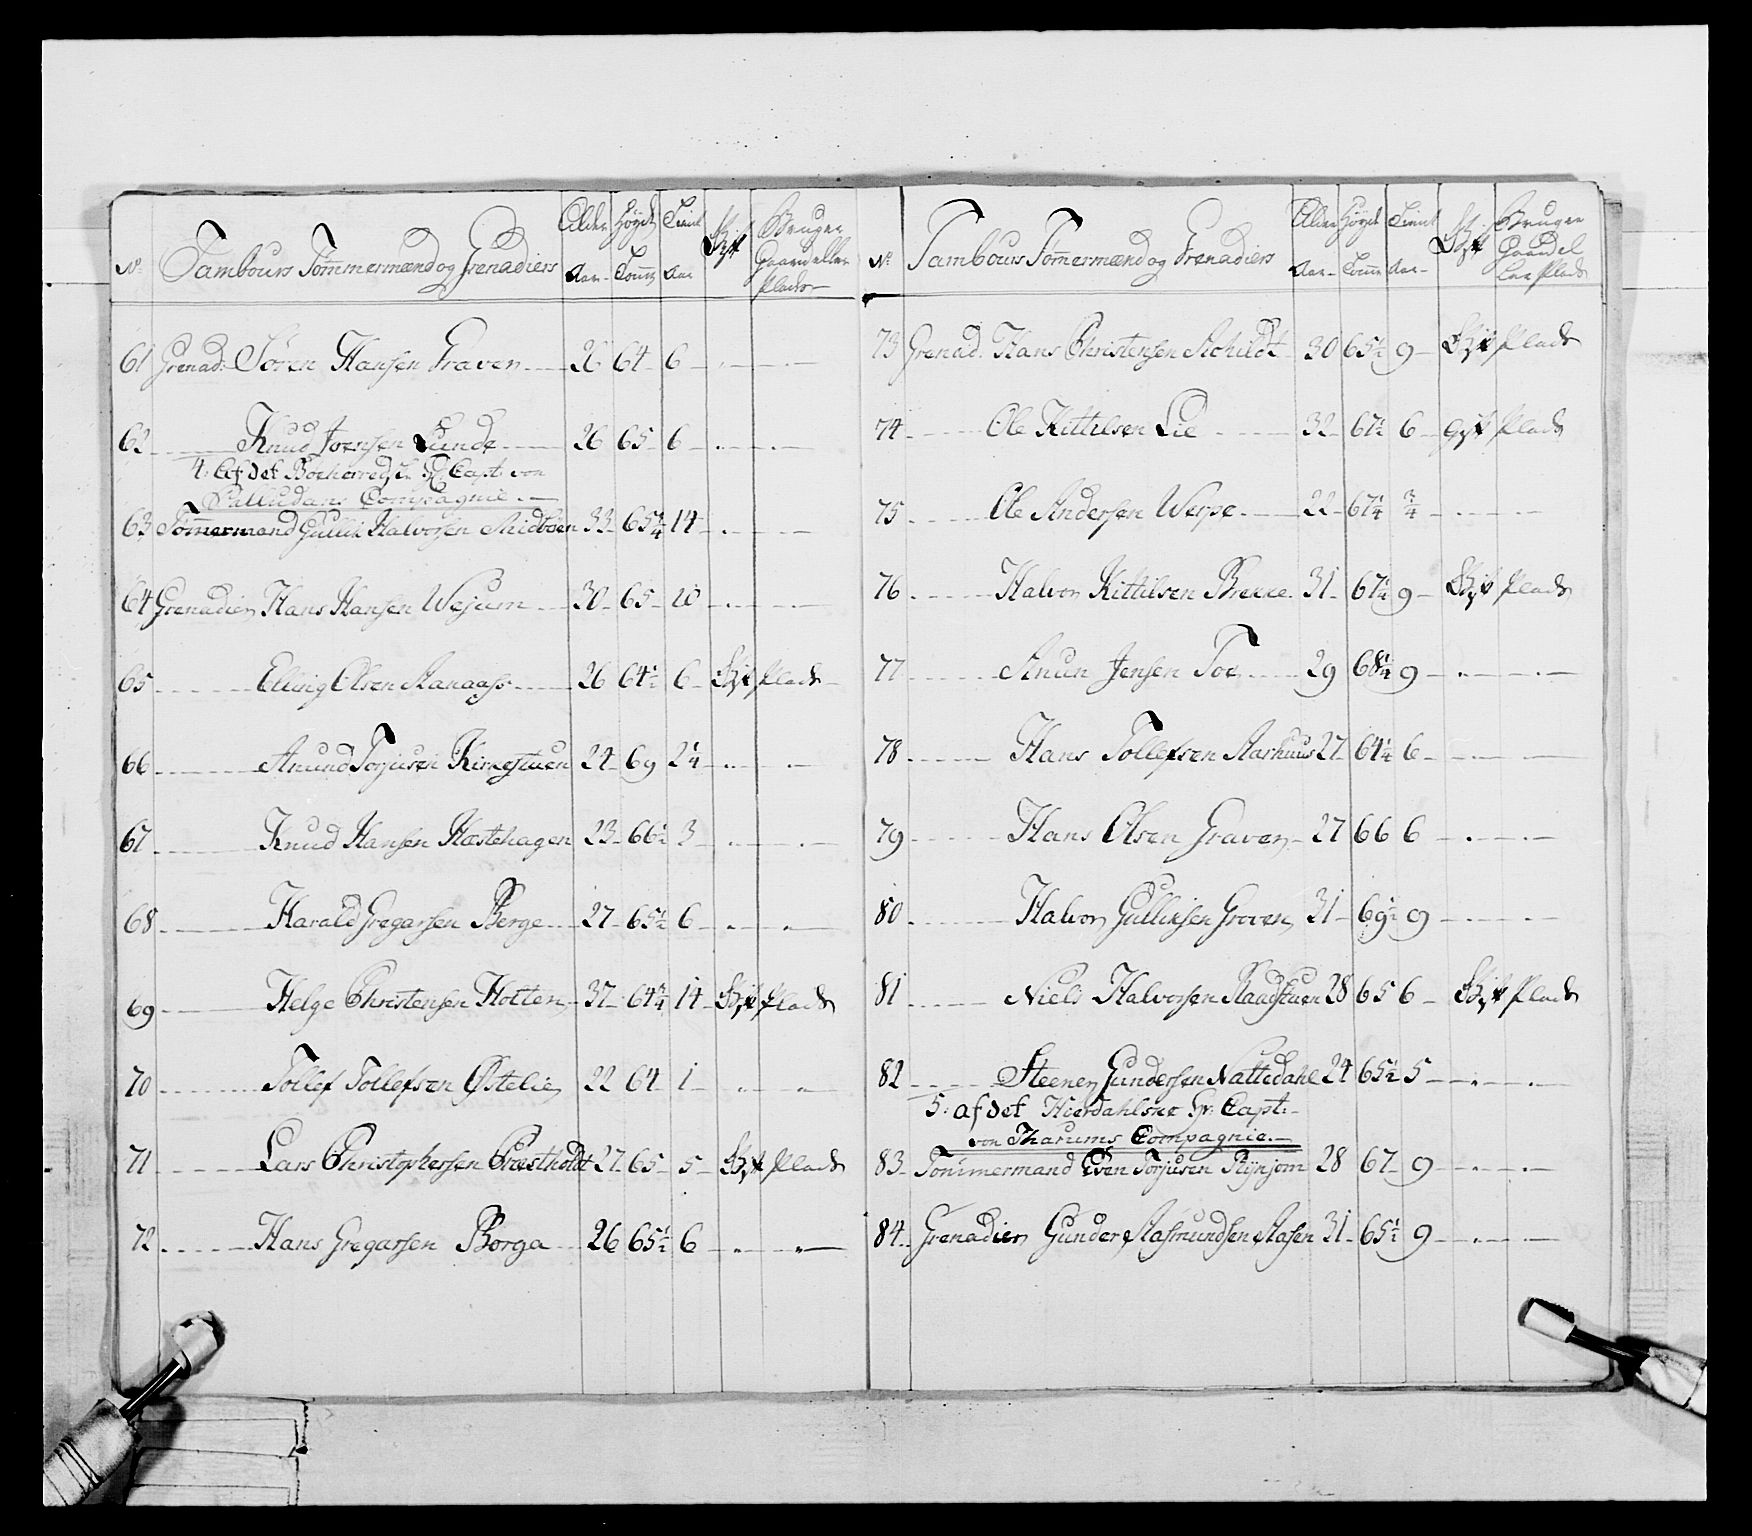 No Tambours Tømmermænd og Grenadiers Alder Aar Høyde Tom̄ Tient Aar Gift Bruger Gaard eller Plads
61 Grenad: Søren Hansen Graven 26 64 6
62 Knud Joensen Lunde 26 65 6
4: Af det Bøeherredske Gr: Capt: von
Palludans Compagnie.
63 Tømmermand Gullik Halvorsen Midbøen 33 65 3/4 14
64 Grenadier Hans Hansen Wejum 30 65 10
65 Elling Olsen Aanaass 26 64 1/2 6 Gift Plads
66 Anund Torjusen Kirrestuen 24 69 2 1/2
67 Knud Hansen Hæstehagen 23 66 1/2 3
68 Harald Gregarsen Berge 27 65 1/2 6
69 Helge Christensen Holten 37 64 3/4 14 Gift Plads
70 Tollef Tollefsen Østelie 22 64 1
71 Lars Christophersen Præstholdt 27 65 5 Gift Plads
72 Hans Gregarsen Borga 26 65 1/2 6
No Tambours Tømmermænd og Grenadiers Alder Aar Høyde Tom̄ Tient Aar Gift Bruger Gaard eller Plads
73 Grenad. Hans Christensen Schildt 30 65 1/2 9 Gift Plads
74 Ole Kittilsen Lie 32 67 1/2 6 Gift Plads
75 Ole Andersen Werpe 22 67 1/4 3/4
76 Halvor Kittilsen Brekke 31 67 1/2 9 Gift Plads
77 Anun Jensen Toe 29 68 1/4 9
78 Hans Tollefsen Aarhuus 27 64 1/4 6
79 Hans Olsen Graven 27 66 6
80 Halvor Gulliksen Groven 31 69 1/2 9
81 Niels Halvorsen Raadstuen 28 65 6 Gift Plads
82 Steener Gundersen Nattedahl 24 65 1/2 5
5: af det Hierdahlske Gr: Capt:
von Tharums Compagnie.
83 Tømmermand Even Torjusen Rynjom 28 67 9
84 Grenadier Gunder Aasmundsen Aasen 31 65 1/2 9